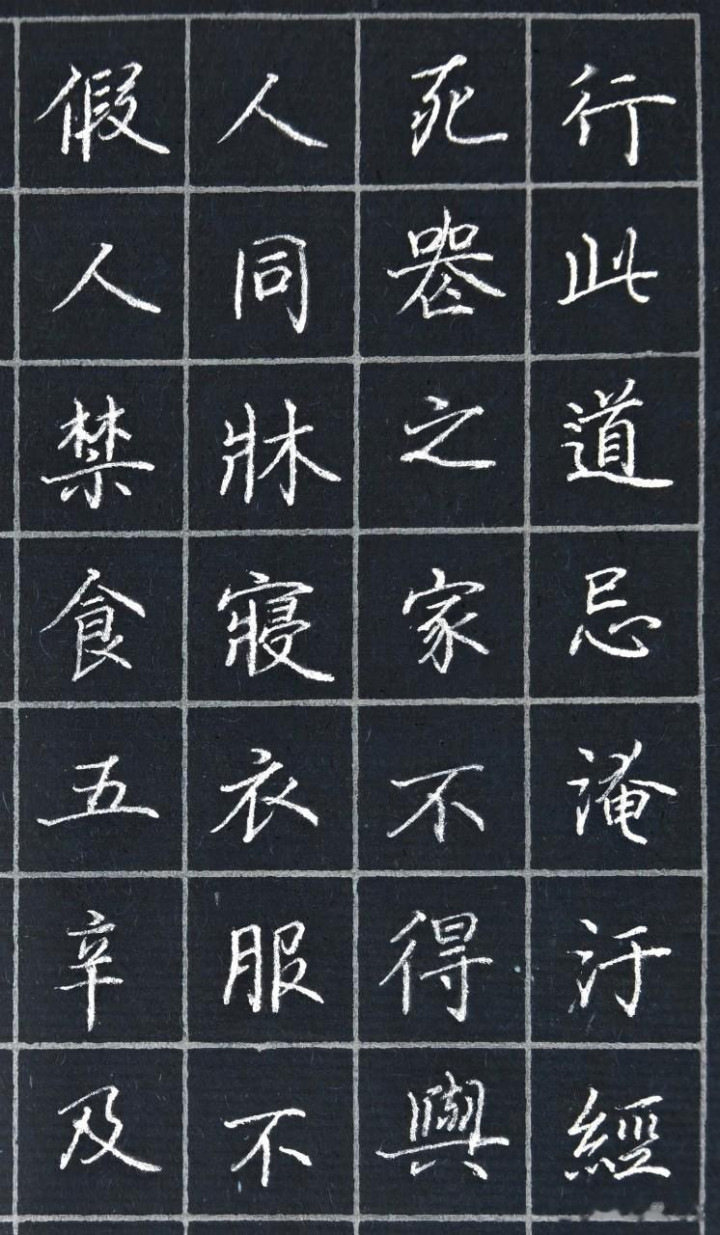 行此道忌淹汙經
死喪之家不得與
人同牀寢衣服不
假人禁食五辛及